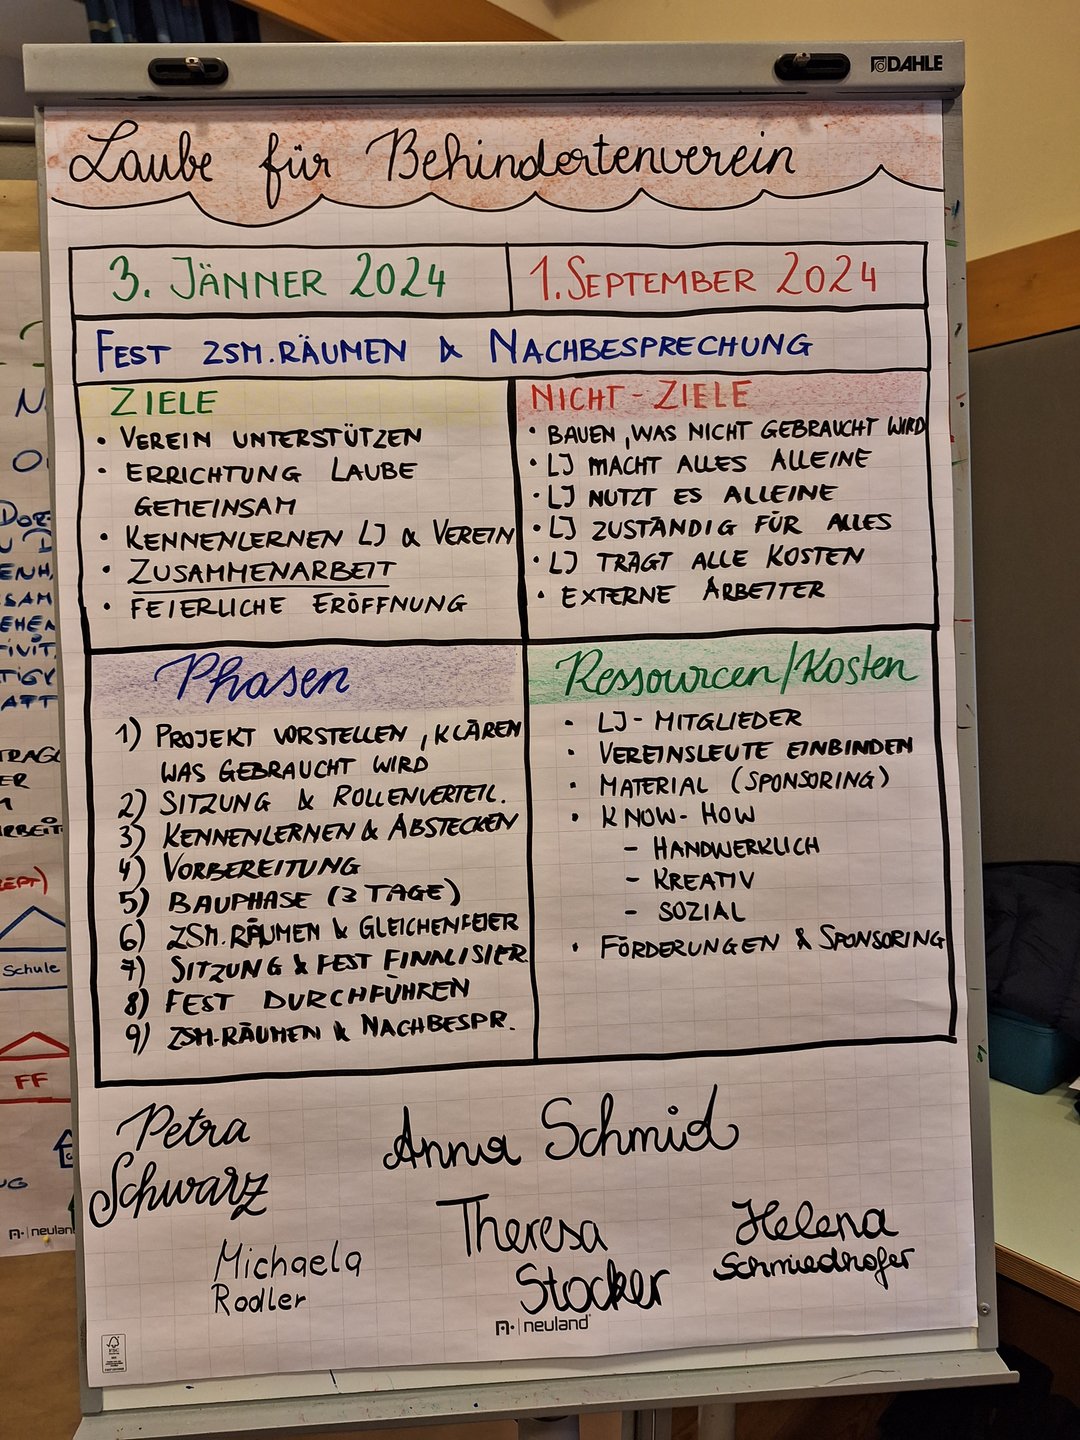 DAHLE
Laube für Behindertenverein
3. JÄNNER 2024
1. SEPTEMBER 2024
FEST ZSM. RÄUMEN & NACHBESPRECHUNG
ZIELE
• VEREIN UNTERSTÜTZEN
• ERRICHTUNG LAUBE
GEMEINSAM
• KENNENLERNEN LJ & VEREIN
• ZUSAMMENARBEIT
• FEIERLICHE ERÖFFNUNG
NICHT-ZIELE
• BAUEN, WAS NICHT GEBRAUCHT WIRD
• LJ MACHT ALLES ALLEINE
• LJ NUTZT ES ALLEINE
• LJ ZUSTÄNDIG FÜR ALLES
• LJ TRÄGT ALLE KOSTEN
• EXTERNE ARBEITER
Phasen
1) PROJEKT VORSTELLEN, KLÄREN
WAS GEBRAUCHT WIRD
2) SITZUNG & ROLLENVERTEIL.
3) KENNENLERNEN & ABSTECKEN
4) VORBEREITUNG
5) BAUPHASE (3 TAGE)
6) ZSM. RÄUMEN & GLEICHENFEIER
7) SITZUNG & FEST FINALISIER
8) FEST DURCHFÜHREN
9) ZSM. RÄUMEN & NACHBESPR.
Ressourcen/Kosten
• LJ-MITGLIEDER
• VEREINSLEUTE EINBINDEN
• MATERIAL (SPONSORING)
• KNOW-HOW
- HANDWERKLICH
- KREATIV
- SOZIAL
• FÖRDERUNGEN & SPONSORING
Petra
Schwarz
Anna Schmid
Michaela
Rodler
Theresa
Stocker
Helena
Schmiedhofer
neuland
Schule
FF
neuland